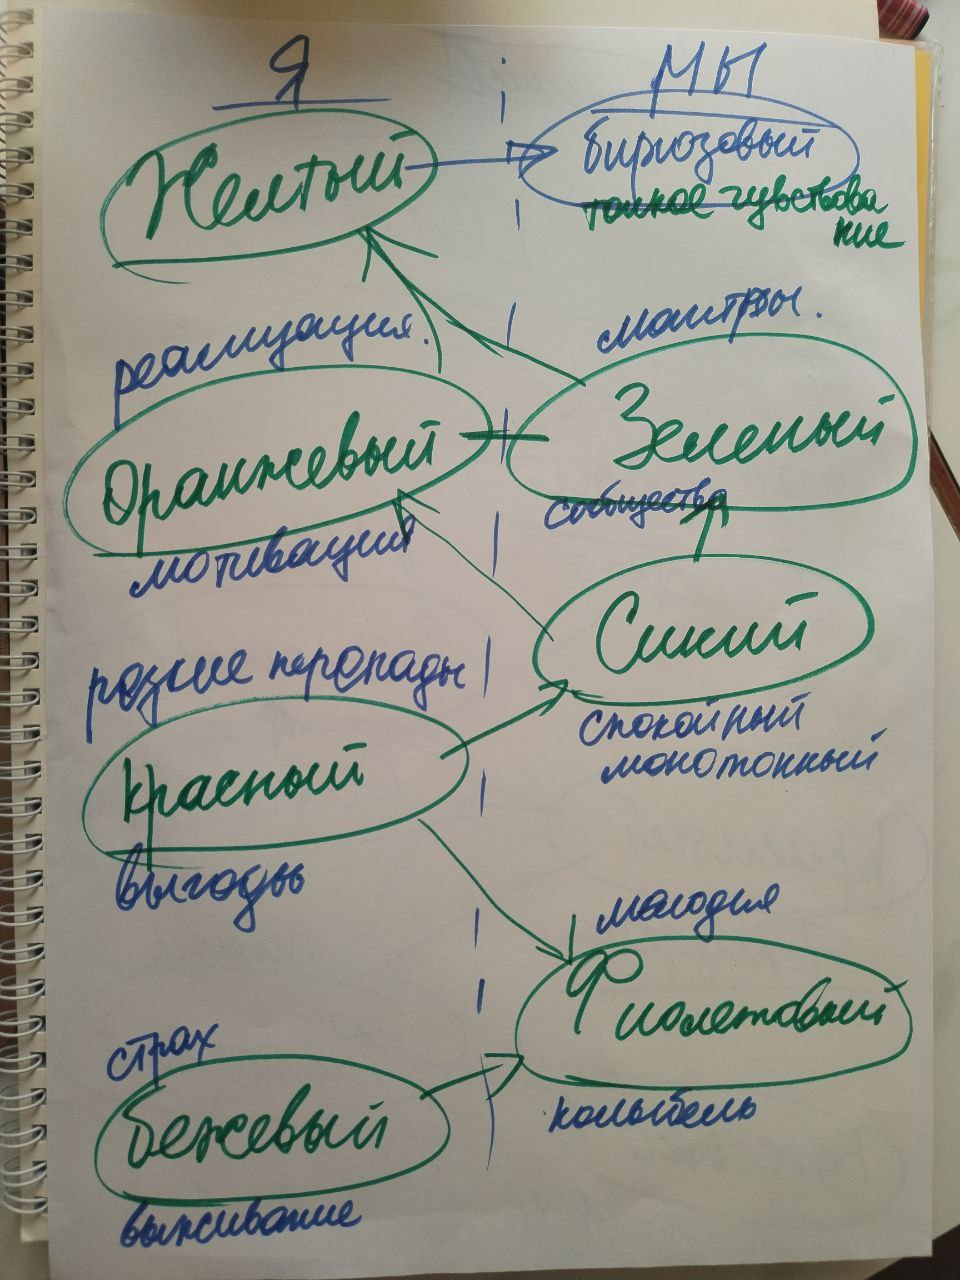 Я
МЫ
Желтый
бирюзовый
тонкое чувствова
ние
реализация.
мантры.
Оранжевый
Зеленый
сообщества
мотивация
Синий
резкие перепады
спокойный
монотонный
Красный
выгоды
мелодия
Фиолетовый
страх
колыбель
бежевый
выживание